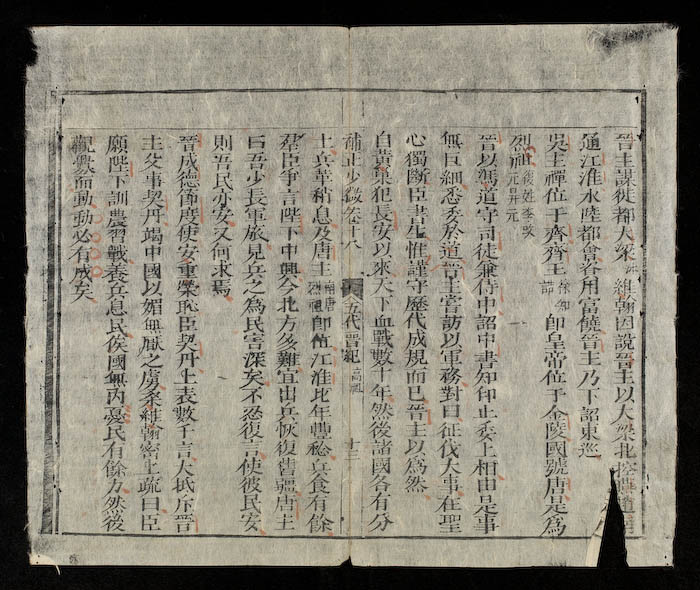 晉主謀徙都大梁維翰因說晉主以大梁北控燕趙
通江淮水陸都會資用富饒晉主乃下詔東巡
吳主禪位于齊齊王徐知誥即皇帝位于金陵國號唐是為
烈祖復姓李改元昇元
晉以馮道守司徒兼侍中詔中書知印止委上相由是事
無巨細悉委於道晉主嘗訪以軍務對曰征伐大事在聖
心獨斷臣書生惟謹守歷代成規而已晉主以為然
自黃巢犯長安以來天下血戰數十年然後諸國各有分
補正少微卷十八 五代晉紀 高祖 十三
土兵革稍息及唐主南唐烈祖即位江淮比年豐稔兵食有餘
羣臣爭言陛下中興今北方多難宜出兵恢復舊疆唐主
曰吾少長軍旅見兵之為民害深矣不忍復言使彼民安
則吾民亦安又何求焉
晉成德節度使安重榮恥臣契丹上表數千言大抵斥晉
主父事契丹竭中國以媚無厭之虜桑維翰密上疏曰臣
願陛下訓農習戰養兵息民俟國無內憂民有餘力然後
觀釁而動動必有成矣